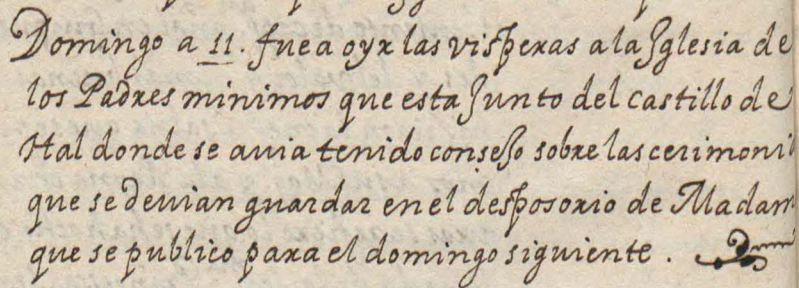 Domingo a 11. fue a oyr las visperas a la Iglesia de
los Padres minimos que esta Junto del castillo de
Hal donde se avia tenido consejo sobre las cerimoni
que se devian guardar en el desposorio de Madam
que se publico para el domingo siguiente.